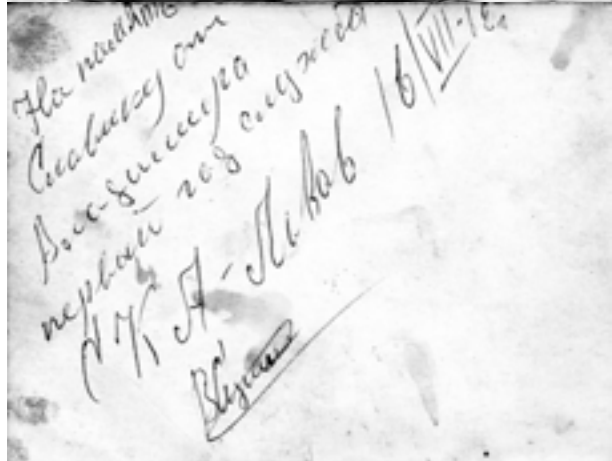 На память
Славику от
Владимира
первый год службы
К А - Львов 16/VII-